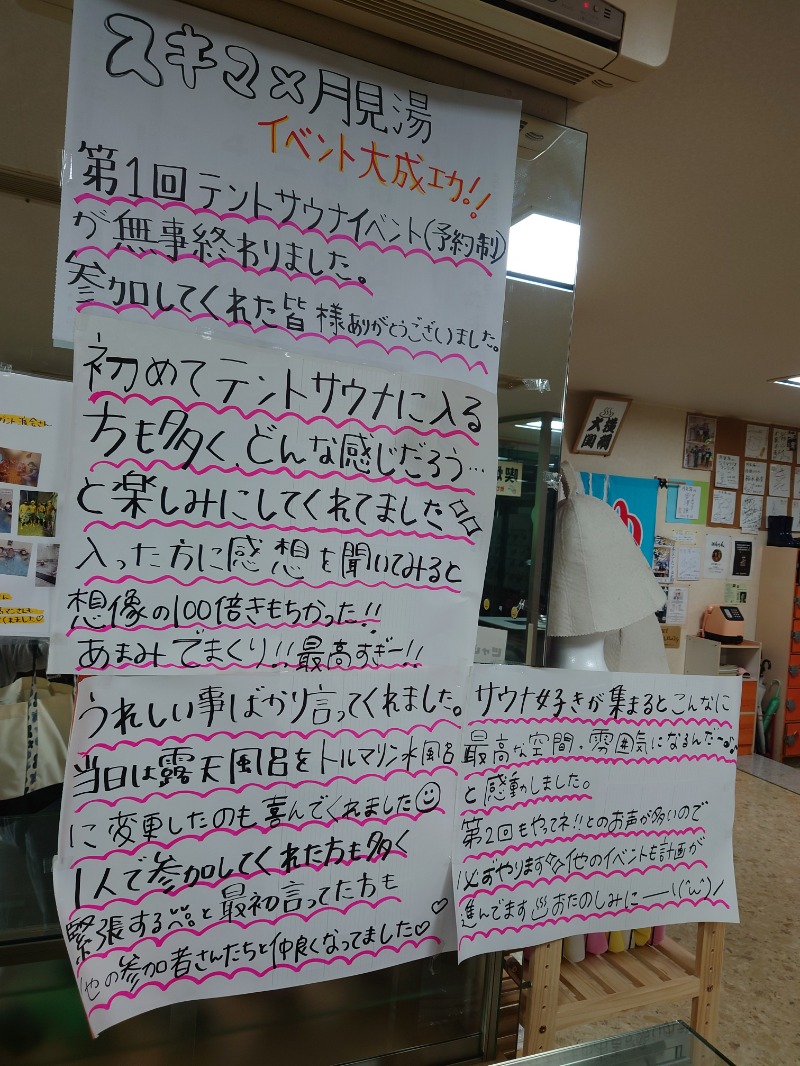 スキマ×月見湯
イベント大成功!!
第1回テントサウナイベント(予約制)
が無事終わりました。
参加してくれた皆様ありがとうございました。
初めてテントサウナに入る
方も多く、どんな感じだろう…
と楽しみにしてくれてました
入った方に感想を聞いてみると
想像の100倍きもちかった!!
あまみでまくり!!最高すぎー!!
うれしい事ばかり言ってくれました。
当日は露天風呂をトルマリン水風呂
に変更したのも喜んでくれました
1人で参加してくれた方も多く
緊張すると最初言ってた方も
他の参加者さんたちと仲良くなってました♡♡
サウナ好きが集まるとこんなに
最高な空間、雰囲気になるんだ〜
と感動しました。
第2回もやってネ!!とのお声が多いので
必ずやります他のイベントも計画が
進んでます♨おたのしみにー\(^ω^)/